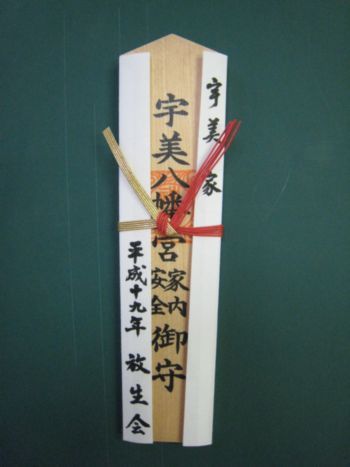 宇美家
宇美八幡宮
家内
安全
御守
平成十九年 放生会